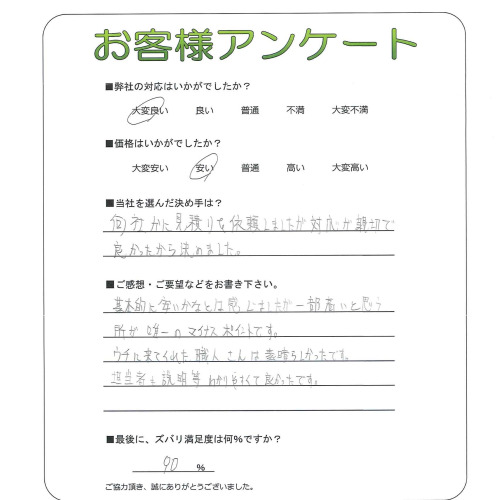 お客様アンケート
■弊社の対応はいかがでしたか？
大変良い 良い 普通 不満 大変不満
■価格はいかがでしたか？
大変安い 安い 普通 高い 大変高い
■当社を選んだ決め手は？
何社かに見積りを依頼しましたが対応が親切で
良かったから決めました。
■ご感想・ご要望などをお書き下さい。
基本的に安いかなとは感じましたが一部高いと思う
所が唯一のマイナスポイントです。
ウチに来てくれた職人さんは素晴らしかったです。
担当者も説明等わかりやすくて良かったです。
■最後に、ズバリ満足度は何%ですか？
90 %
ご協力頂き、誠にありがとうございました。